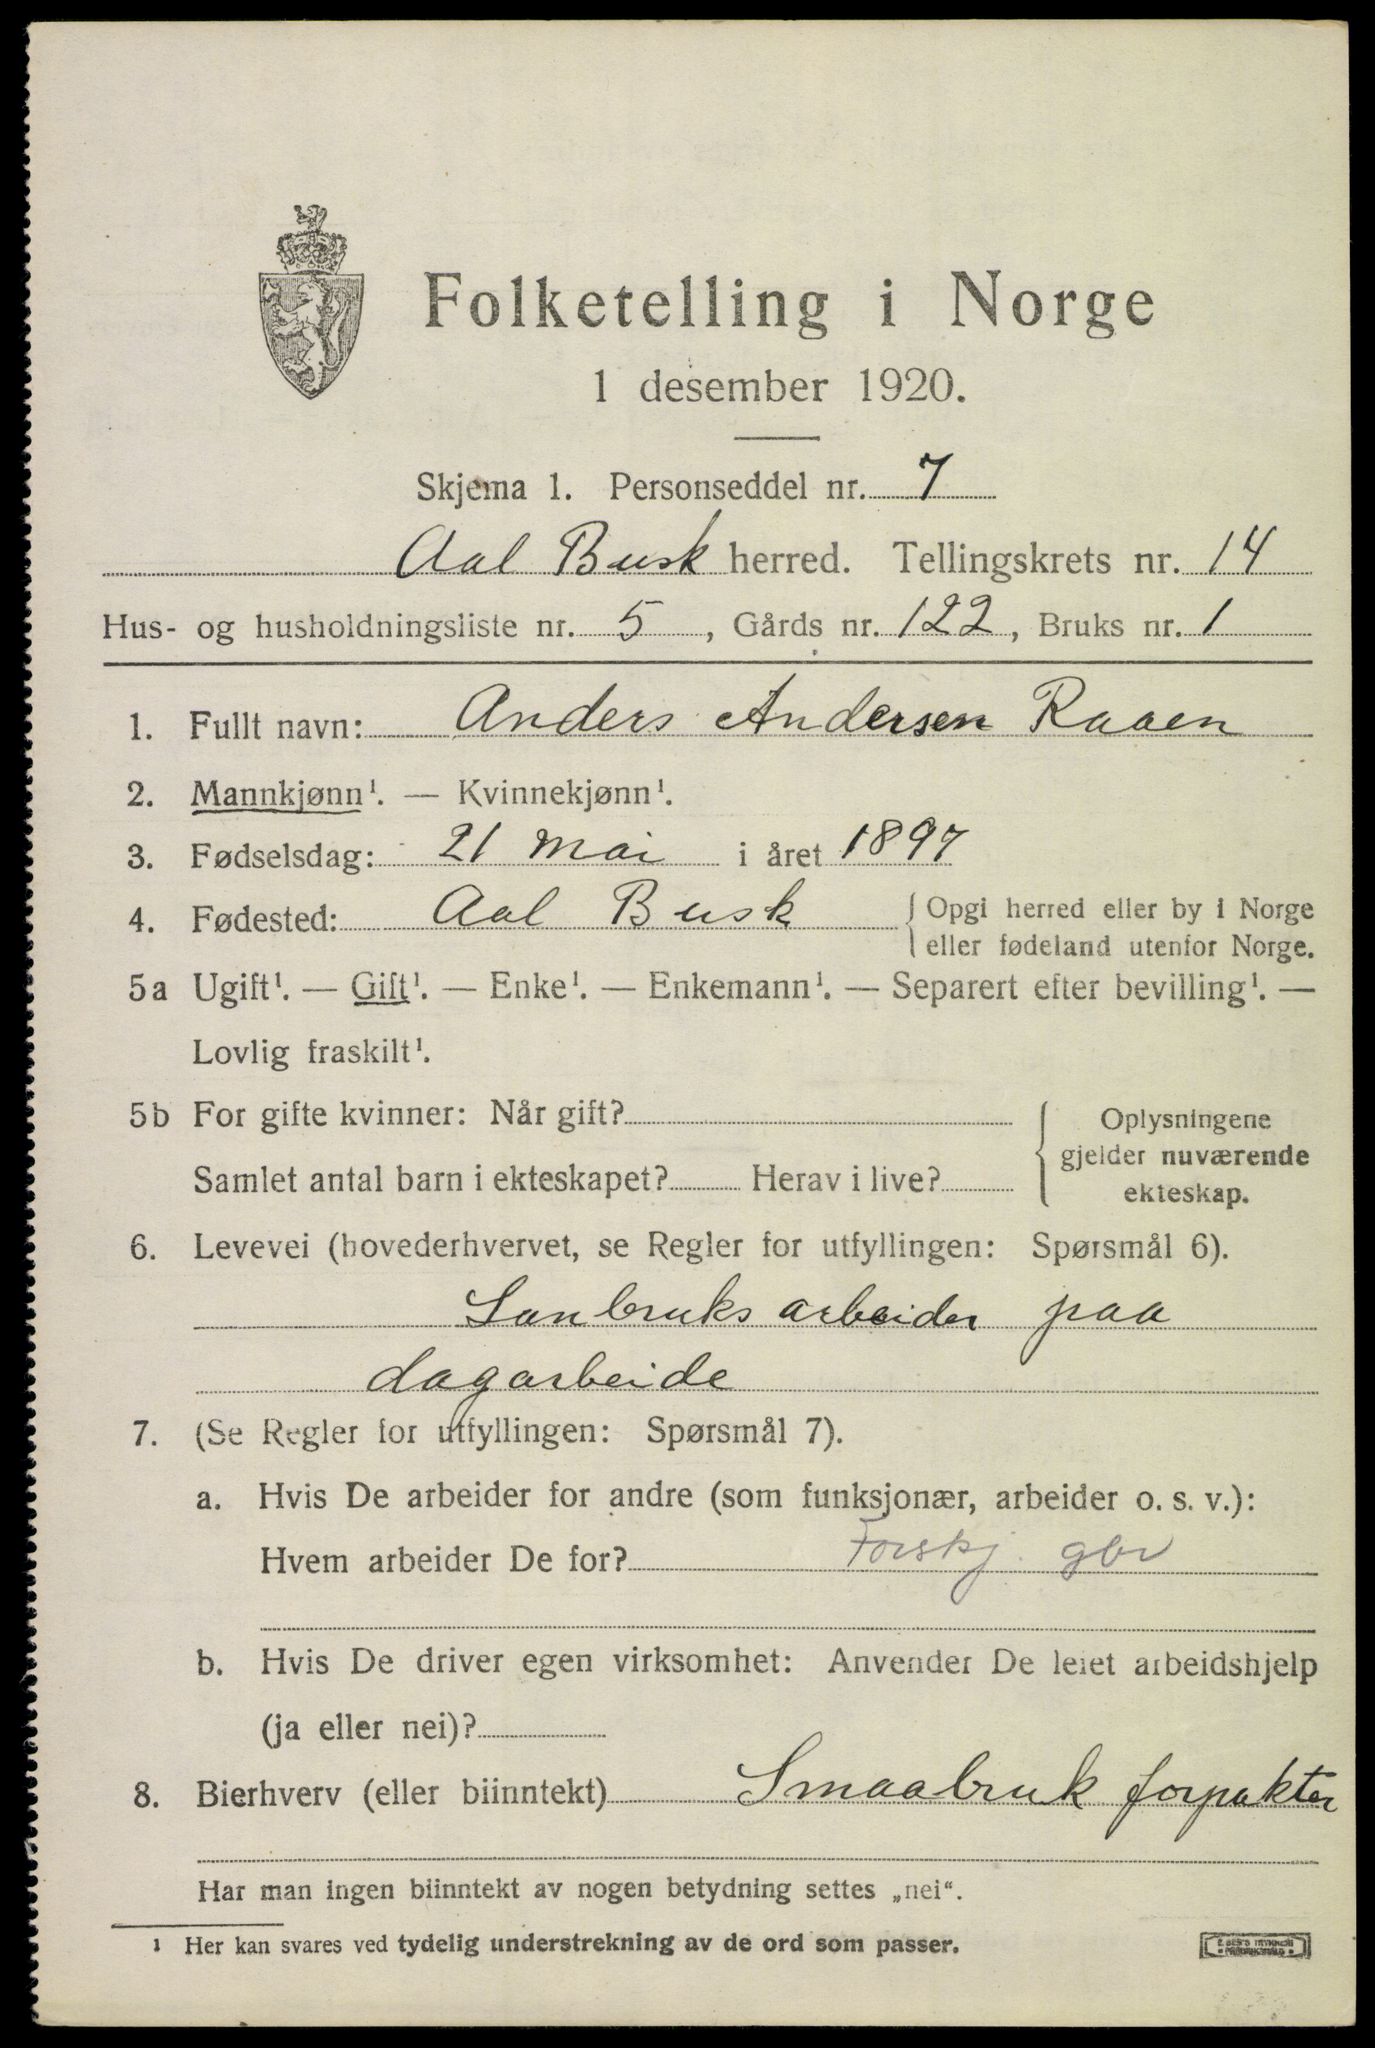 Folketelling i Norge
1 desember 1920.
Skjema 1. Personseddel nr. 7
Aal Busk herred. Tellingskrets nr. 14
Hus- og husholdningsliste nr. 5, Gårds nr. 122, Bruks nr. 1
1. Fullt navn: Anders Andersen Raaen
2. Mannkjønn¹. — Kvinnekjønn¹.
3. Fødselsdag: 21 mai i året 1897
4. Fødested: Aal Busk { Opgi herred eller by i Norge
eller fødeland utenfor Norge.
5a Ugift¹. — Gift¹. — Enke¹. — Enkemann¹. — Separert efter bevilling¹. —
Lovlig fraskilt¹.
5b For gifte kvinner: Når gift?
Samlet antal barn i ekteskapet? Herav i live?
{ Oplysningene
gjelder nuværende
ekteskap.
6. Levevei (hovederhvervet, se Regler for utfyllingen: Spørsmål 6).
Lanbruks arbeider paa
dagarbeide
7. (Se Regler for utfyllingen: Spørsmål 7).
a. Hvis De arbeider for andre (som funksjonær, arbeider o. s. v.):
Hvem arbeider De for? Forskj. gbr
b. Hvis De driver egen virksomhet: Anvender De leiet arbeidshjelp
(ja eller nei)?
8. Bierhverv (eller biinntekt) Smaabruk forpakter
Har man ingen biinntekt av nogen betydning settes „nei“.
¹ Her kan svares ved tydelig understrekning av de ord som passer.